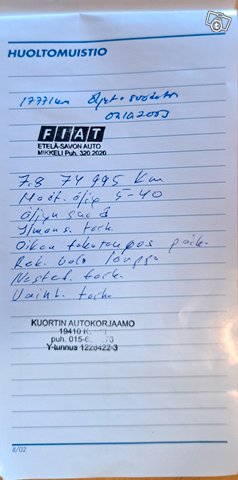 HUOLTOMUISTIO
17771km Öljyt + suodatin
02.10.2003
FIAT
ETELÄ-SAVON AUTO
MIKKELI Puh. 320 2020
7.8 74 995 km
Moott. öljy 5-40
Öljyn suod
Ilmans. tark.
Oikea takaumpio paik.
Rek. valo lamppu
Nesteet tark.
Vaiht. tark.
KUORTIN AUTOKORJAAMO
19410
puh. 015-6
Y-tunnus 1228422-3
8/02